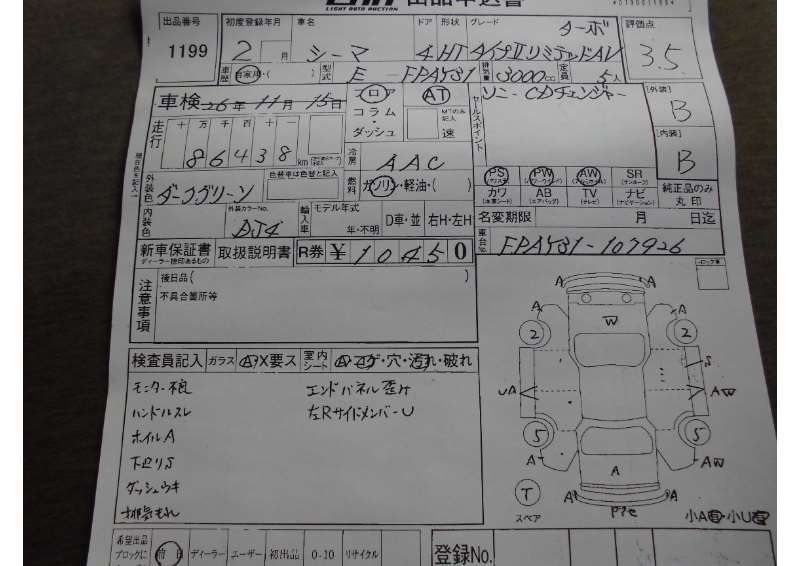 LIGHT AUTO AUCTION
出品番号 初度登録年月 車名 ドア 形状 グレード 評価点
1199 2 月 シーマ 4 HT ターボ 3.5
タイプⅡリミテッドAV
車歴 自家用・( ) 型式 E-FPAY31 排気量 3000cc 定員 5人
車検 26年11月15日 フロア AT ソニーCDチェンジャー [外装]
コラム・ダッシュ 速 B
走行 十 万 千 百 十 [内装]
86438 km 冷房 AAC B
外装色 ダークグリーン 色替車は色替と記入 燃料 ガソリン・軽油・( ) PS PW AW SR
カワ AB TV ナビ 純正品のみ丸印
内装色 外装カラーNo. AJ4 輸入車 モデル年式 年・不明 D車・並 右H・左H 名変期限 月 日迄
新車保証書 取扱説明書 R券 ¥10450 車台No. FPAY31-107926
注意事項 後日品( )
不具合箇所等
検査員記入 ガラス A X要ス 室内シート A・コゲ・穴・汚れ・破れ
モニター不良 エンドパネル歪ケ
ハンドルスレ 左RサイドメンバーU
ホイルA
下廻りS
ダッシュウキ
排気もれ
A A
A A
2 W 2
S
UA AW
5 5
A A AW
T A A
スペア
小A 小U
希望出品ブロックに 前日 ディーラー ユーザー 初出品 0-10 リサイクル 登録No.